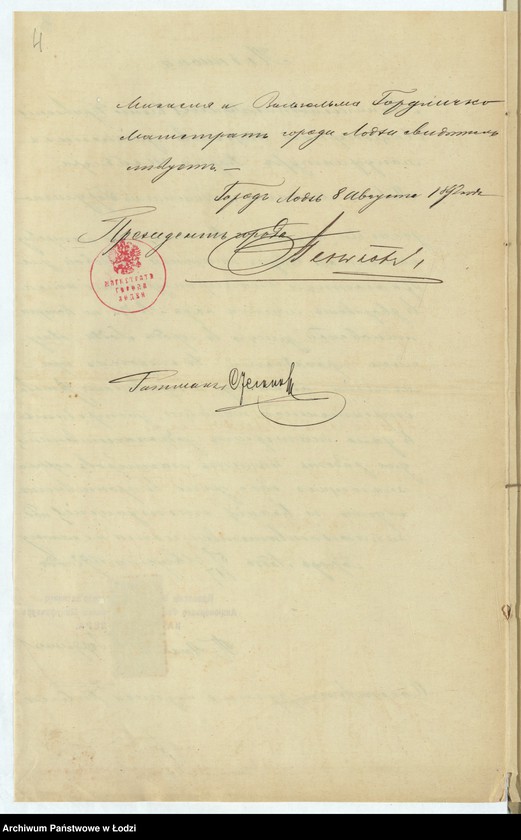 4
Михаила и Вильгельма Гордличко
Магистратъ города Лодзи свидѣтель-
ствуетъ.
Городъ Лодзь 8 Августа 1892 года
Президентъ города Пеньковск
МАГИСТРАТА
ГОРОДА
ЛОДЗИ
Ратманъ
Archiwum Państwowe w Łodzi